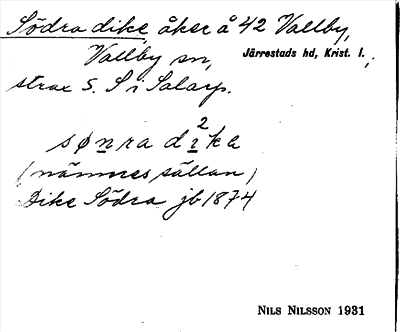 Södra dike, åker å 42 Vallby,
Vallby sn, Järrestads hd, Krist. l.,
strax S. S i Salarp.
sønra di²ka
(nämnes sällan)
Dike Södra jb 1874
NILS NILSSON 1931